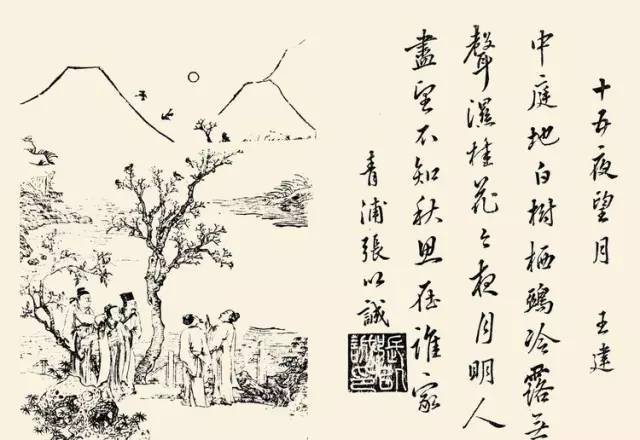 十五夜望月 王建
中庭地白樹栖鴉冷露無
聲濕桂花今夜月明人
盡望不知秋思在誰家
青浦張以誠
張以誠印